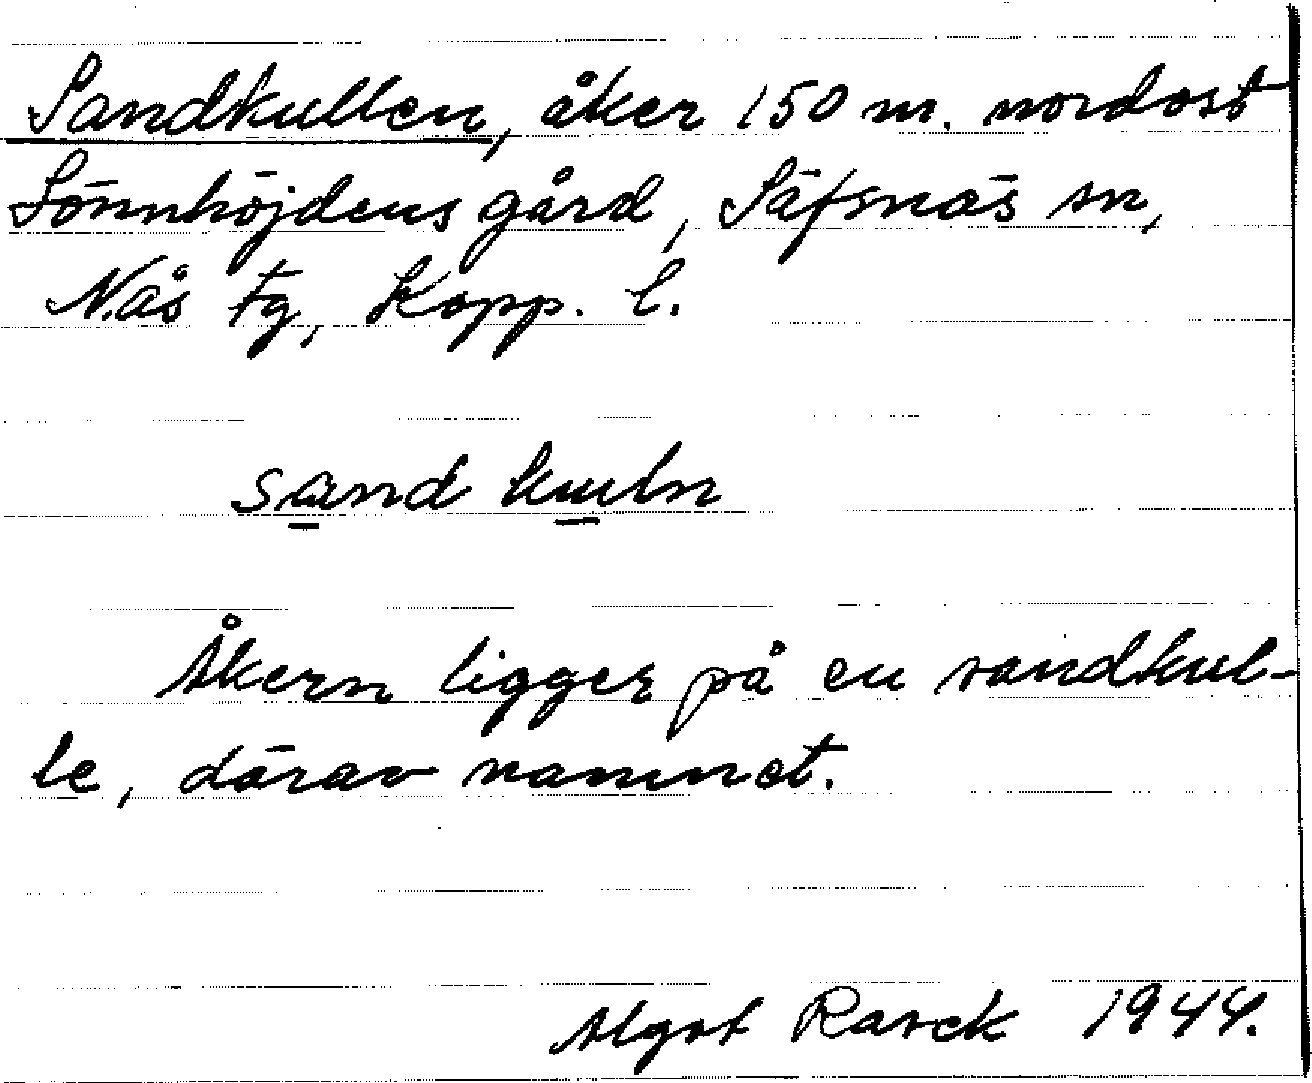 Sandkullen, åker 150 m. nordost
Lönnhöjdens gård, Säfsnäs sn,
Nås tg, Kopp. l.
sand kuln
Åkern ligger på en sandkul-
le, därav namnet.
Algot Rarck 1944.